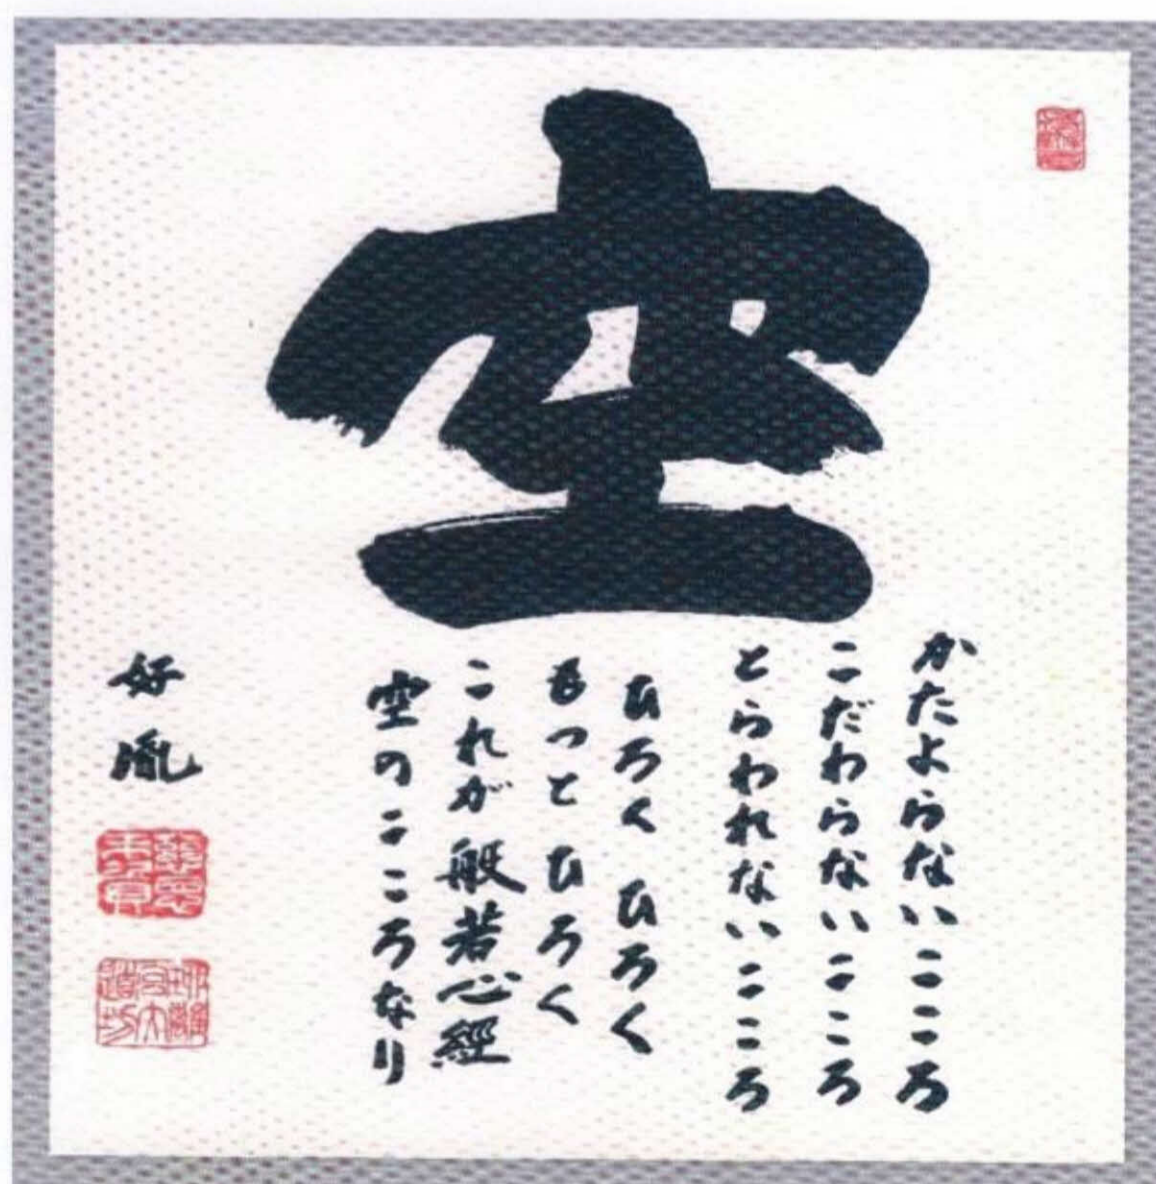 空
かたよらないこころ
こだわらないこころ
とらわれないこころ
ひろくひろく
もっとひろく
これが般若心經
空のこころなり
好胤